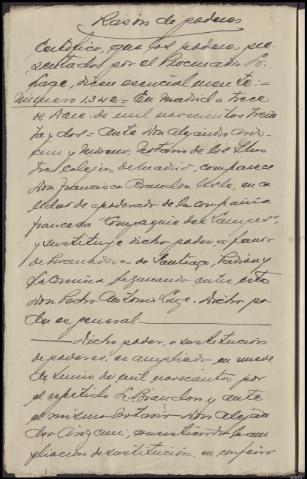 Razón de poderes
Certifico, que los poderes pre-
sentados por el Procurador Sr.
Lage, dicen esencialmente: =
Número 1.348 = En Madrid a trece
de de mil novecientos trein-
ta y dos = ante Don Alejandro
y Moreno, Notario de los Ilus-
tres Colegios de Madrid, comparece
Don Francisco en ca-
lidad de apoderado de la compañía
francesa "Compagnie des Lampes",
y sustituye dicho poder, a favor
de Procuradores de Santiago, Padrón y
La Coruña, figurando entre estos
Don Pedro Antonio Lage. Dicho po-
der es general
Dicho poder, o sustitución
de poderes, es ampliado en nueve
de Junio de mil novecientos por
el repetido Sr. y ante
el mismo Notario Don Alejan-
dro la am-
pliación de sustitución, en